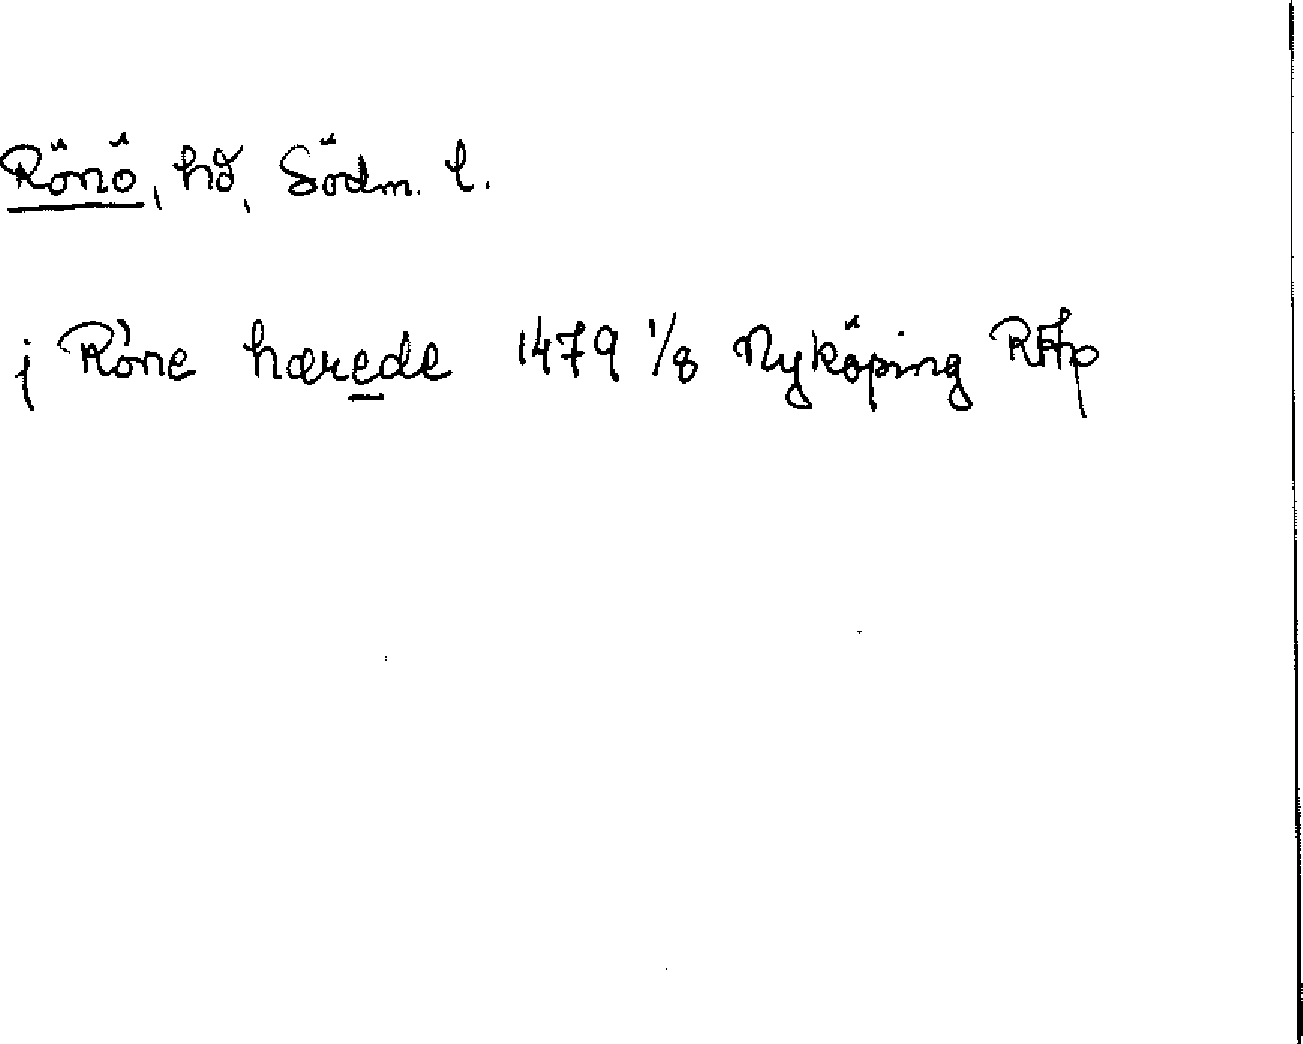 Rönö, hd, Södm. l.
j Röne hærede 1479 1/8 Nyköping RAp